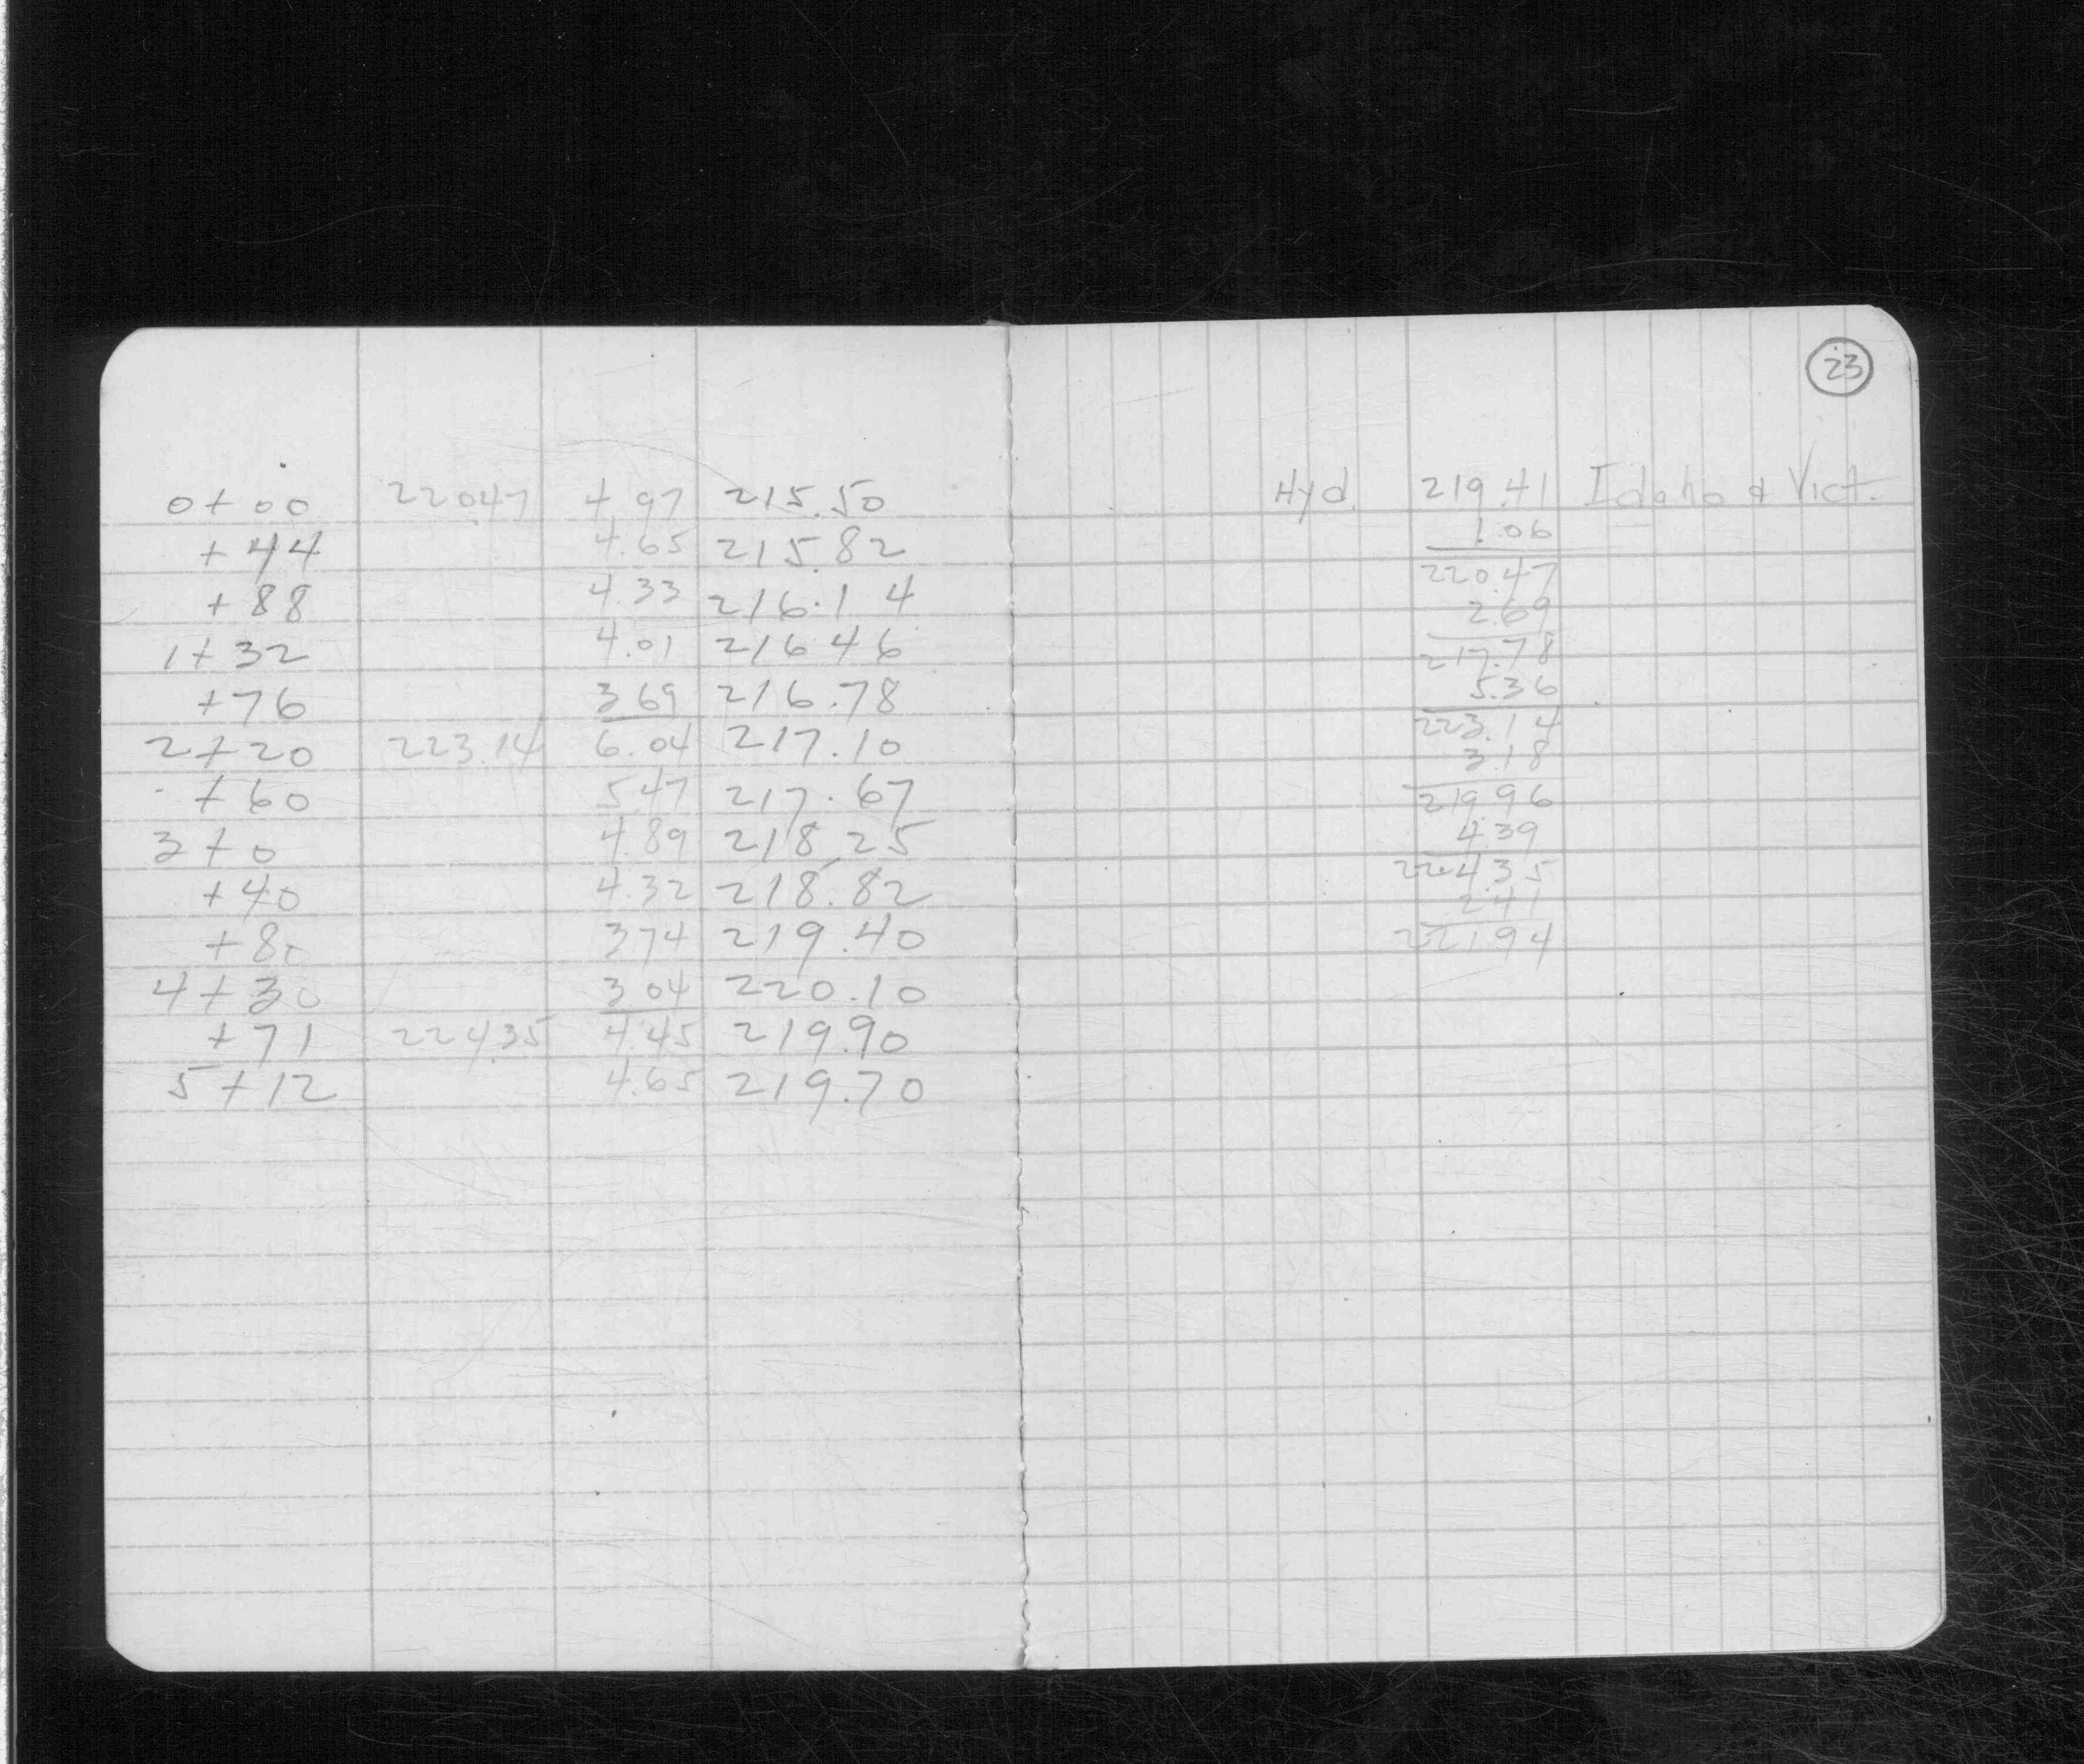 23
0+00 220.47 4.97 215.50
+44 4.65 215.82
+88 4.33 216.14
1+32 4.01 216 46
+76 3 69 216.78
2+20 223.14 6.04 217.10
+60 5.47 217.67
3+0 4.89 218.25
+40 4.32 218.82
+80 3 74 219.40
4+30 3 04 220.10
+71 224.35 4.45 219.90
5+12 4.65 219.70
Hyd. 219.41 Idaho & Vict.
1.06
220.47
2.69
217.78
5.36
223.14
3.18
219.96
4.39
224.35
2.41
221 94